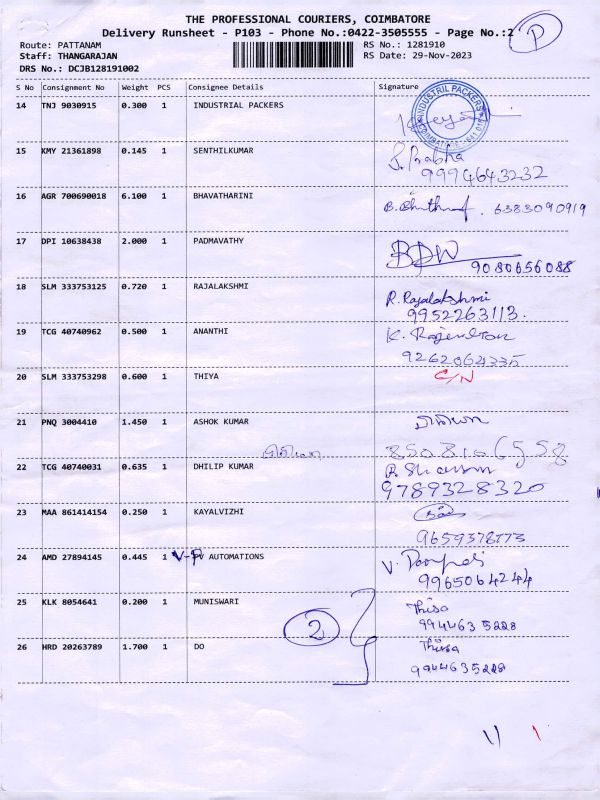 THE PROFESSIONAL COURIERS, COIMBATORE
Delivery Runsheet - P103 - Phone No.:0422-3505555 - Page No.:2 P
Route: PATTANAM RS No.: 1281910
Staff: THANGARAJAN RS Date: 29-Nov-2023
DRS No.: DCJB128191002
S No Consignment No Weight PCS Consignee Details Signature
14 TNJ 9030915 0.300 1 INDUSTRIAL PACKERS
INDUSTRIL PACKERS
15 KMY 21361898 0.145 1 SENTHILKUMAR S. Prabha
9994643232
16 AGR 700690018 6.100 1 BHAVATHARINI 6383090919
17 DPI 10638438 2.000 1 PADMAVATHY
9080656088
18 SLM 333753125 0.720 1 RAJALAKSHMI R. Rajalakshmi
9952263113.
19 TCG 40740962 0.500 1 ANANTHI K. Rajendran
9262064335
20 SLM 333753298 0.600 1 THIYA C/N
21 PNQ 3004410 1.450 1 ASHOK KUMAR
8508106558
22 TCG 40740031 0.635 1 DHILIP KUMAR
9789328320
23 MAA 861414154 0.250 1 KAYALVIZHI
9659378773
24 AMD 27894145 0.445 1 V-P AUTOMATIONS
9965064244
25 KLK 8054641 0.200 1 MUNISWARI Thisa
9944635228
26 HRD 20263789 1.700 1 DO 2 Thisa
9944635228